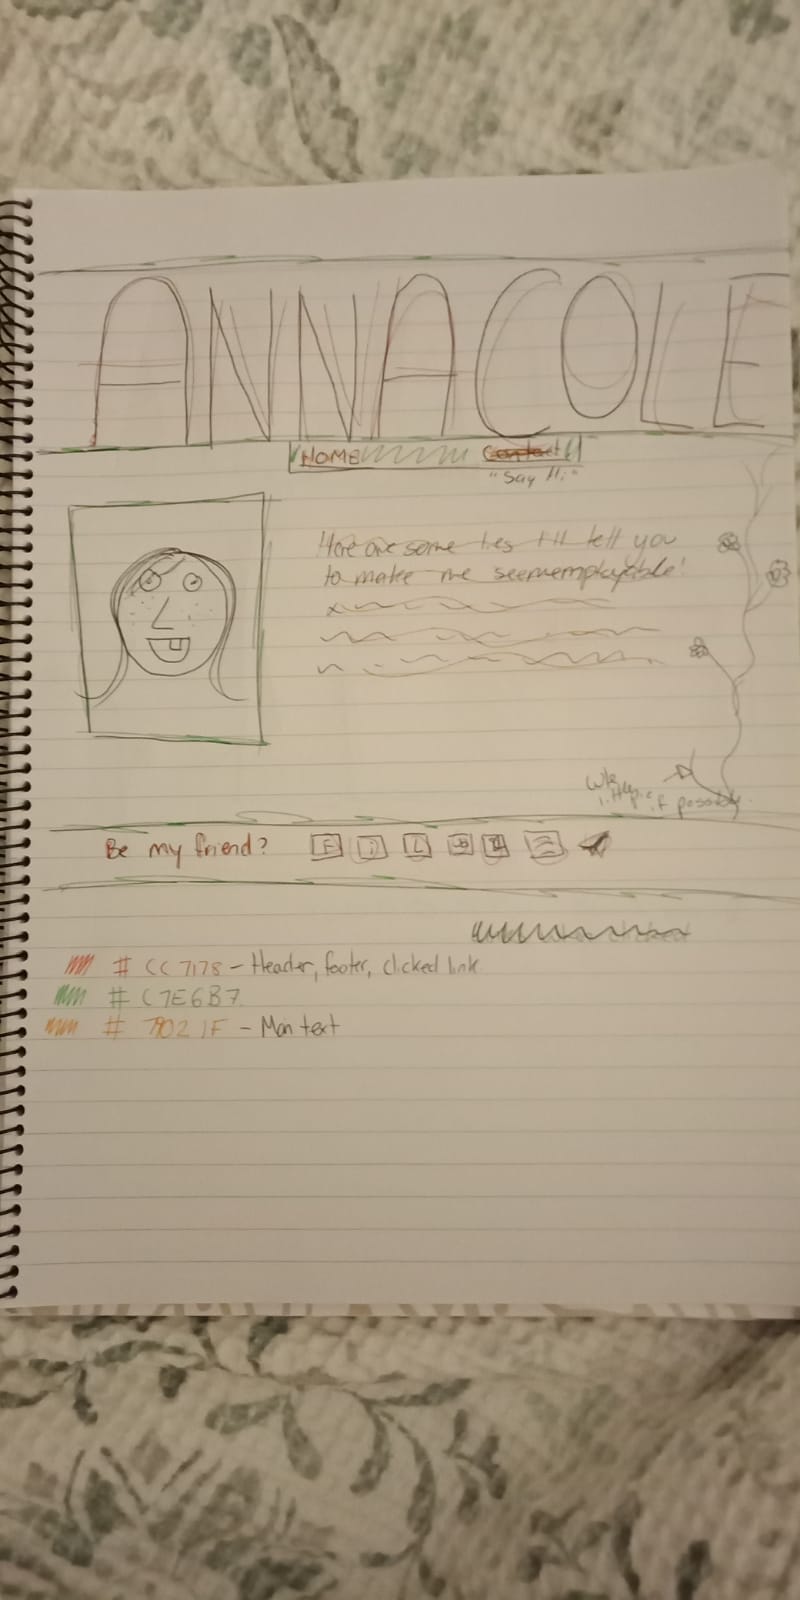 ANNACOLE
HOME Contact
"Say Hi"
Here are some lies I'll tell you
to make me seem employable!
little pic if possible
Be my friend?
F L
# CC7178 - Header, footer, clicked link
# C7E6B7
- Main text